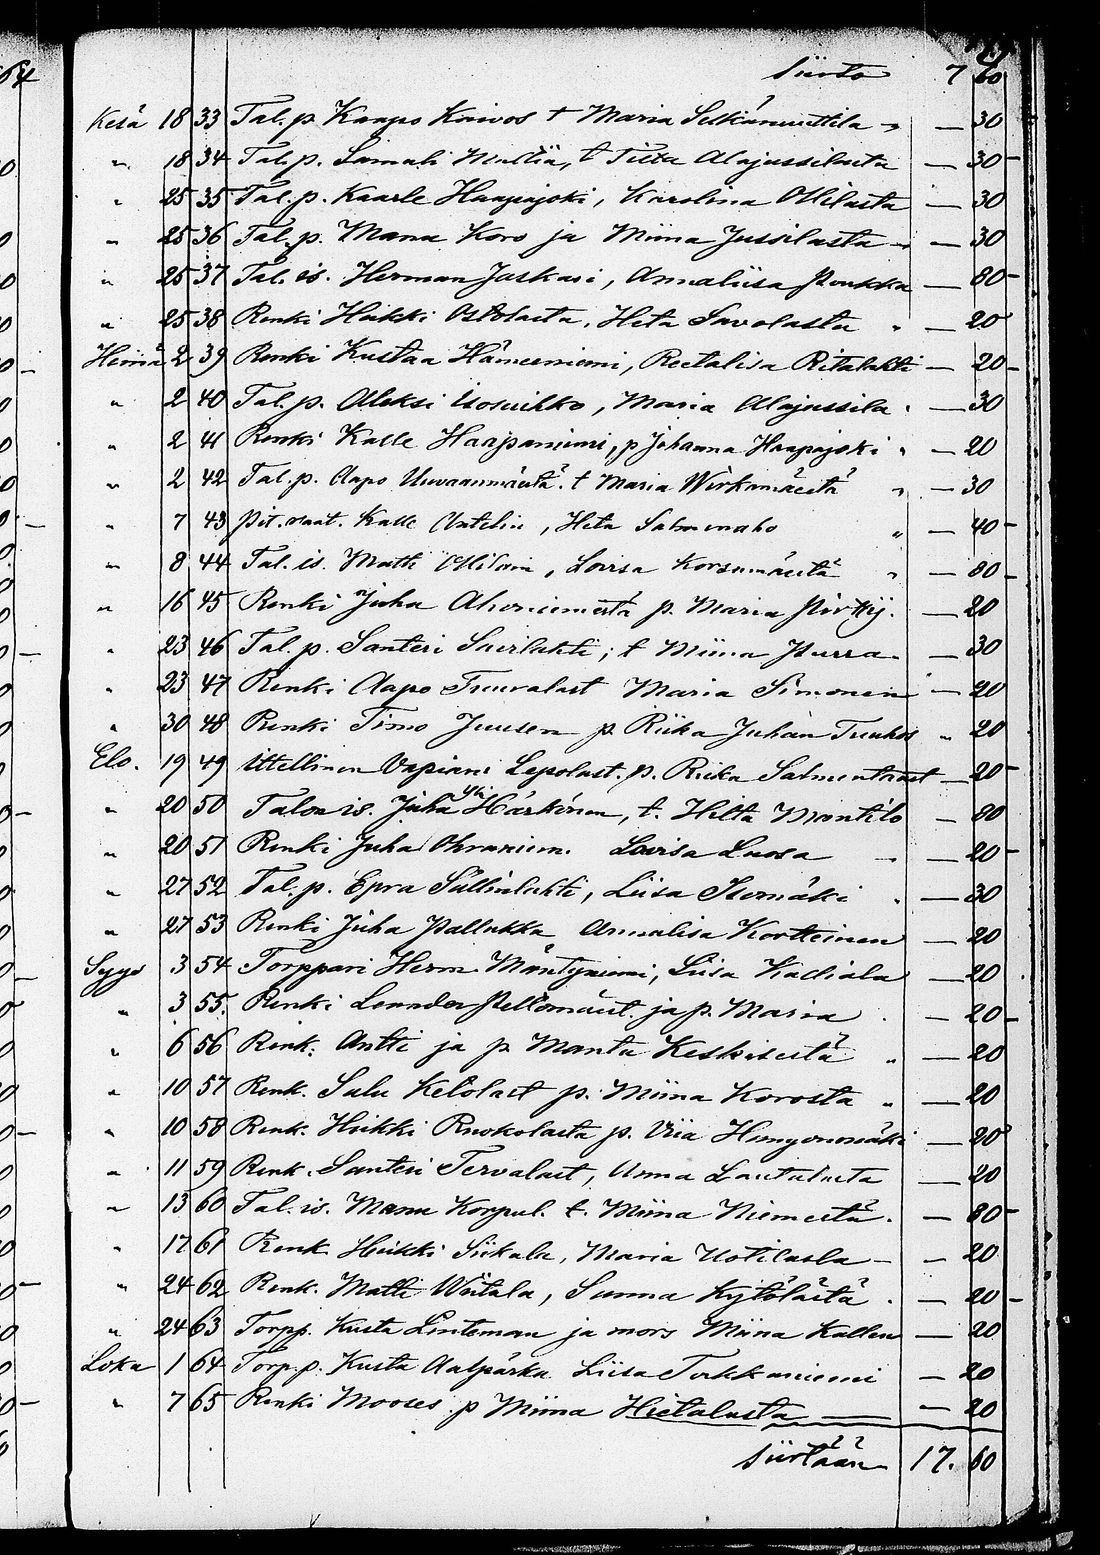 Siirto 7 60
Kesä 18 33 Tal. p. Kaapo Koivos t Maria Selkämuttila " — 30
" 18 34 Tal. p. Samali Mattia, t Tiita Alajussilasta — 30
" 25 35 Tal. p. Kaarle Haapajoki, Karolina Ollilasta — 30
" 25 36 Tal. p. Manu Koro ja Miina Jussilasta — 30
" 25 37 Tal. is. Herman Jaskari, Annaliisa Poukka — 80
" 25 38 Renki Heikki Ostolasta, Heta Savolasta " — 20
Heinä 2 39 Renki Kustaa Hämeeniemi, Reetalisa Ritalahti — 20
" 2 40 Tal. p. Aleksi Isosuihko, Maria Alajussila " — 30
" 2 41 Renki Kalle Haapaniemi, p Johanna Haapajoki " — 20
" 2 42 Tal. p. Aapo Uuvaanmäestä t Maria Wirkamäestä " — 30
" 7 43 Pit. raat. Kalle Antelin, Heta Salmenaho " — 40
" 8 44 Tal. is. Matti Ollilan, Lovisa Korsumäestä " — 80
" 16 45 Renki Juha Ahoniemestä p. Maria Pirttij. — 20
" 23 46 Tal. p. Santeri Saarlahti, t Miina Purra — 30
" 23 47 Renki Aapo Tuuvalast Maria Simonen — 20
" 30 48 Renki Timo Juusen p. Riika Juhan Tuuhos " 20
Elo. 19 49 Ittellinen Vapiani Lepolast. p. Riika Salmentaast — 20
" 20 50 Talon is. Juha Yli Härkönen, t. Hilta Mantilo — 80
" 20 51 Renki Juha Ohraniem. Lovisa Luosa — 20
" 27 52 Tal. p. Epra Sällinlahti, Liisa Isomäki " — 30
" 27 53 Renki Juha Pallukka Annalisa Kortteinen — 20
Syys 3 54 Torppari Herm. Mäntyniemi, Liisa Kadiala — 20
" 3 55. Renki Leander Peltomäest. ja p. Maria " — 20
" 6 56 Renk. Antti ja p. Manta Keskisestä " — 20
" 10 57 Renk. Salu Ketolast p. Miina Korosta " — 20
" 10 58 Renk. Heikki Ruokolasta p. Viia Hongonmäki — 20
" 11 59 Renk. Santeri Tervalast, Anna Lautalasta — 20
" 13 60 Tal. is. Manu Korpul. t. Miina Niemestä. — 80
" 17 61 Renk Heikki Siikala, Maria Uotilasla — 20
" 24 62 Renk. Matti Wiitala, Sanna Kytölästä . — 20
" 24 63 Torpp. Kusta Linteman ja mors Miina Kallen — 20
Loka 1 64 Torp. p. Kusta Aalpärka Liisa Tokkaniemi — 20
" 7 65 Renki Mooses p Miina Hietalasta — 20
Siirtään 17. 60